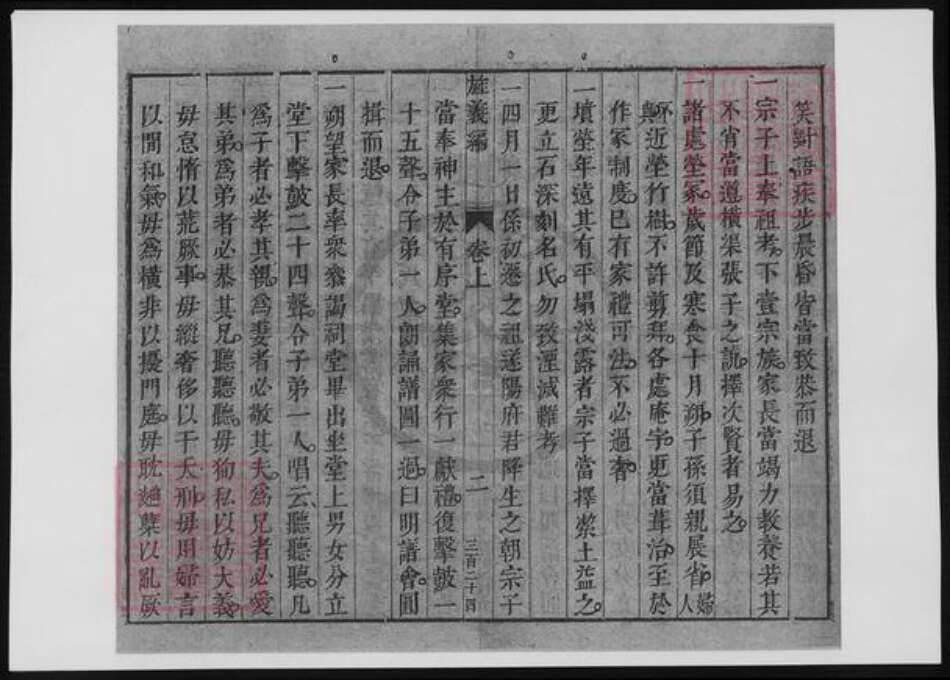 笑對語疾步晨昏皆當致恭而退
一宗子上奉祖考。下壹宗族。家長當竭力教養若其
不肖當遵橫渠張子之說。擇次賢者易之。
一諸處塋冢。歲節及寒食十月朔。子孫須親展省。婦人
不與近塋竹樹。不許剪拜。各處庵宇。更當葺治。至於
作冢制度。已有家禮可法。不必過奢。
一墳塋年遠。其有平塌淺露者。宗子當擇潔土益之。
更立石深刻名氏。勿致湮滅難考
一四月一日係初遷之祖遂陽府君降生之朝宗子
旌義編 卷上 二 三百二十四
當奉神主於有序堂。集家衆行一獻禮。復擊鼓一
十五聲。令子弟一人。朗誦譜圖一過。曰明譜會。圓
揖而退。
一朔望。家長率衆叅謁祠堂畢出坐堂上男女分立
堂下擊鼓二十四聲。令子弟一人。唱云聽聽聽。凡
爲子者必孝其親。爲妻者必敬其夫。爲兄者必愛
其弟。爲弟者必恭其兄。聽聽聽。毋徇私以妨大義。
毋怠惰以荒厥事。毋縱奢侈以干天刑。毋用婦言
以間和氣。毋爲橫非以擾門庭。毋耽麯糵以亂厥